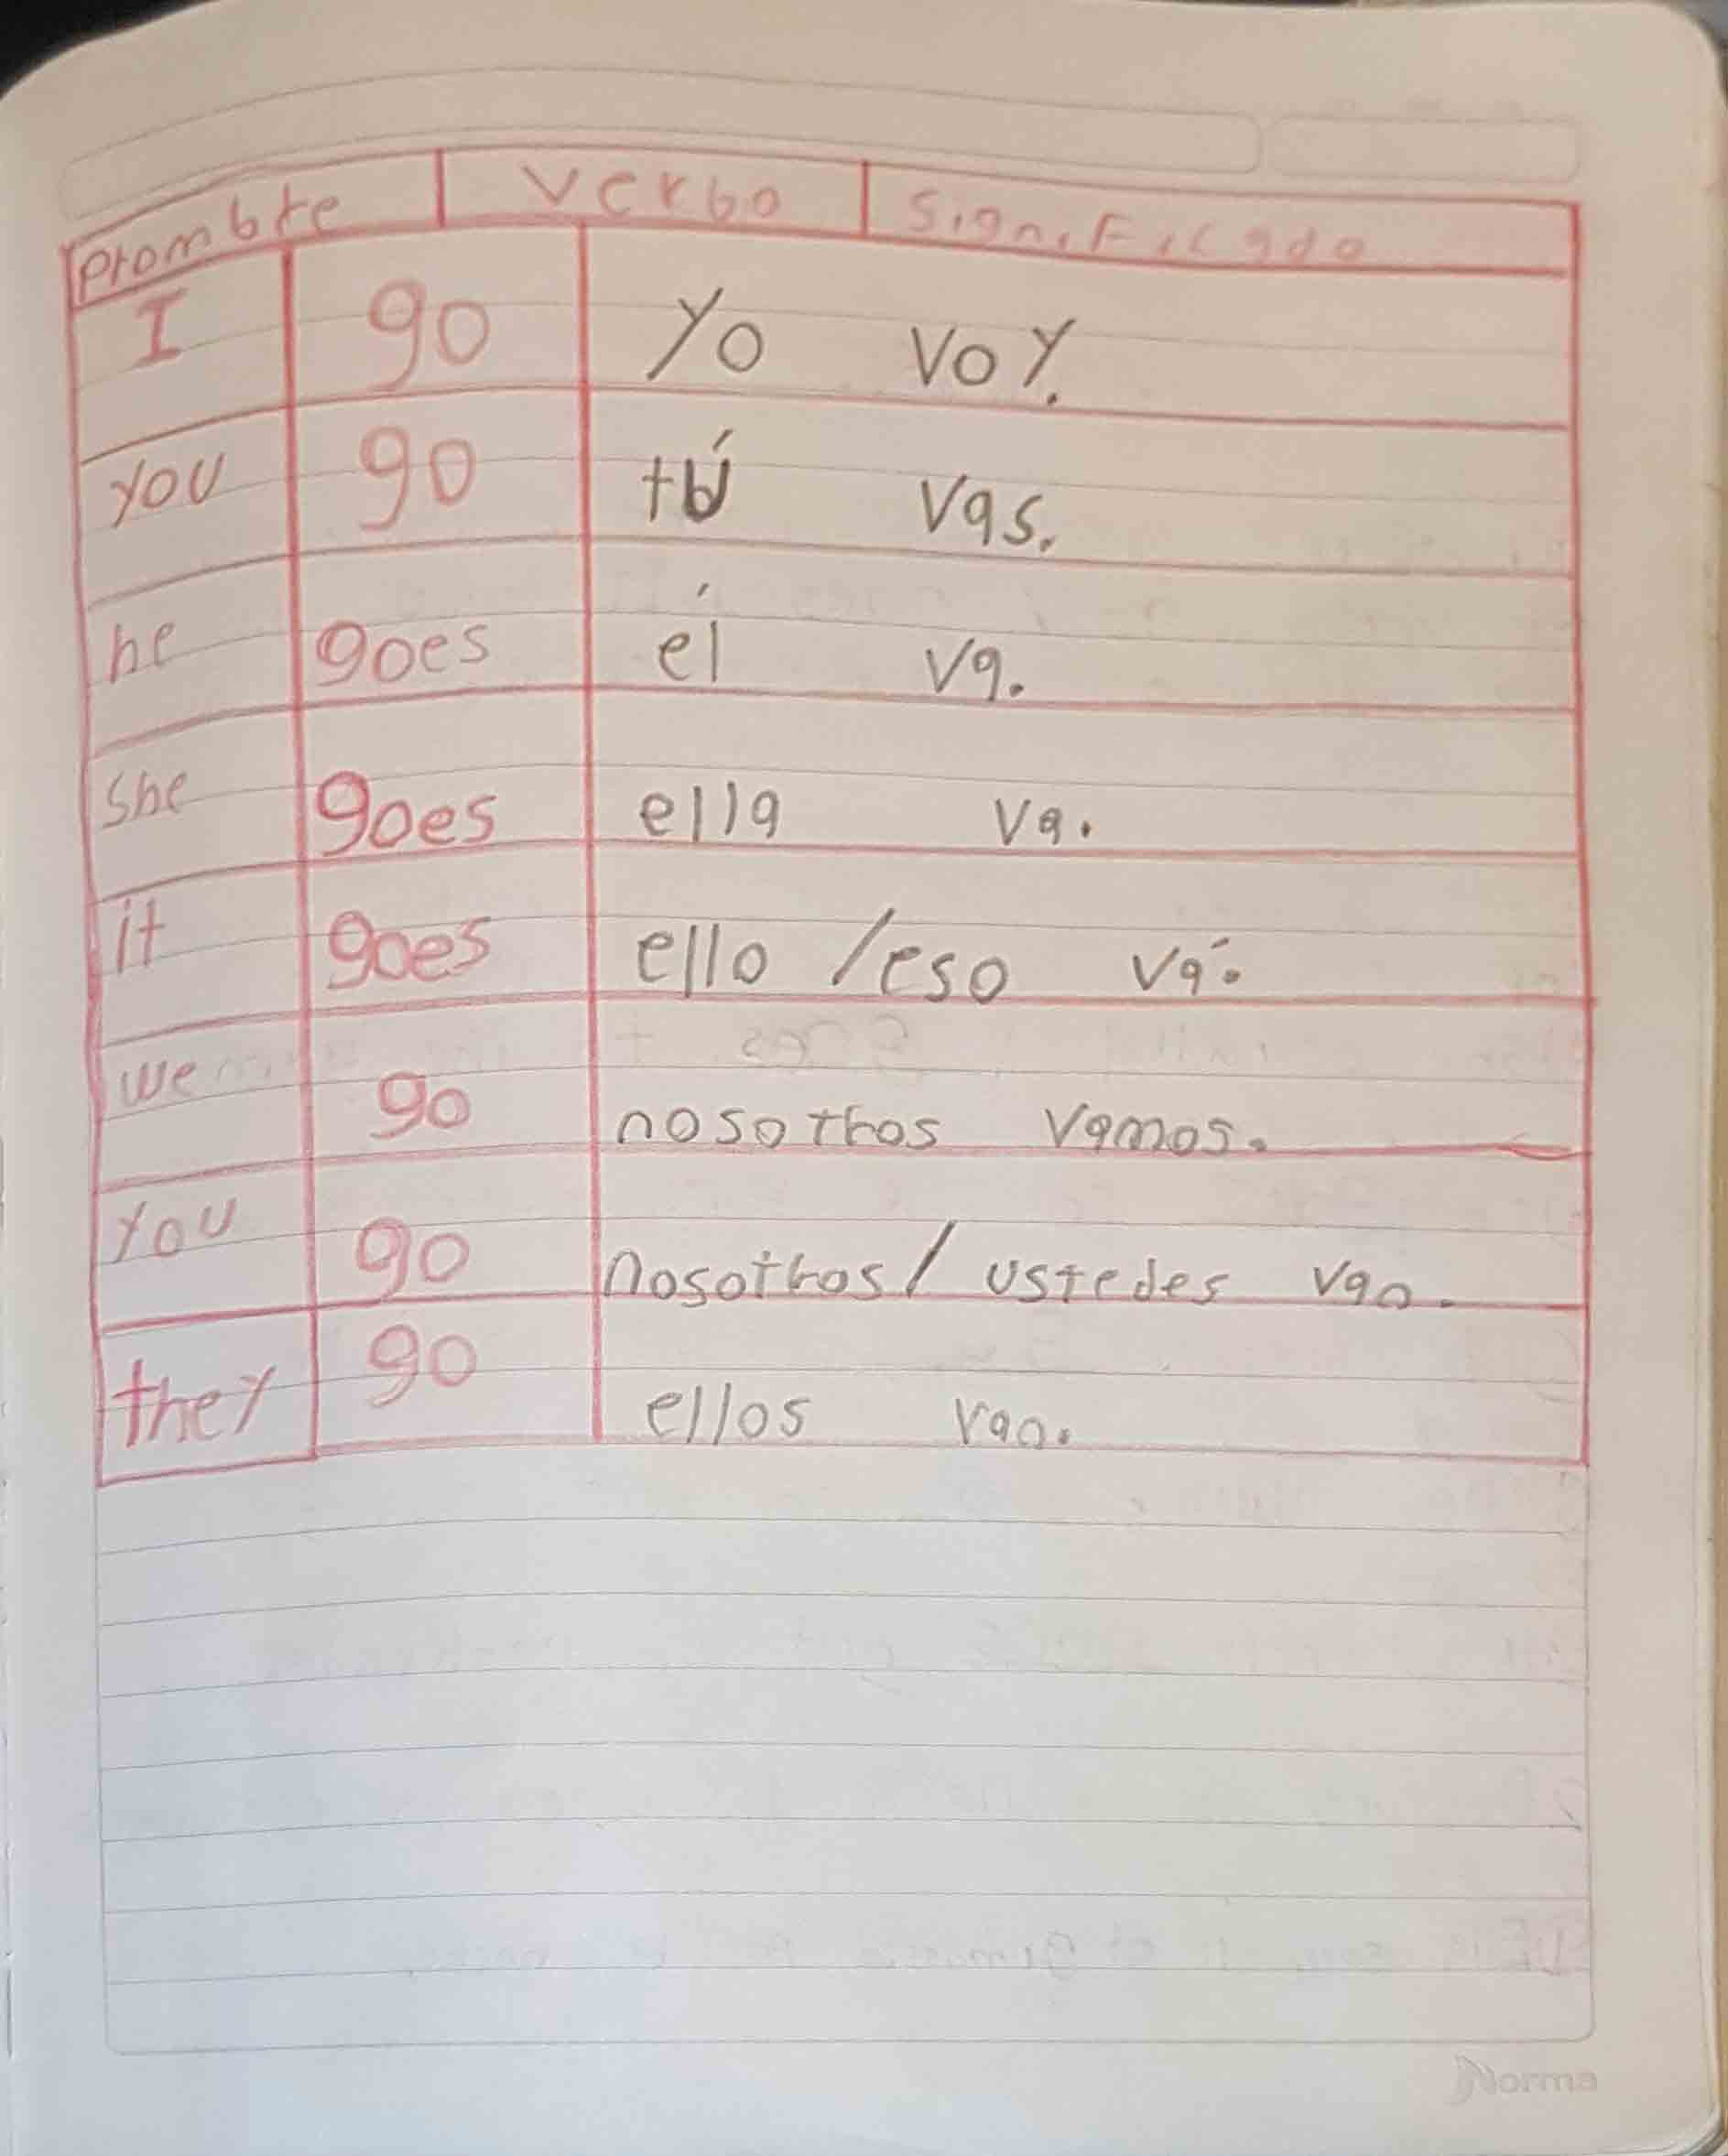 Prombre verbo significado
I go yo voy.
you go tú vas.
he goes él va.
she goes ella va.
it goes ello /eso vá.
we go nosotros vamos.
you go nosotros/ ustedes van.
they go ellos van.
Norma